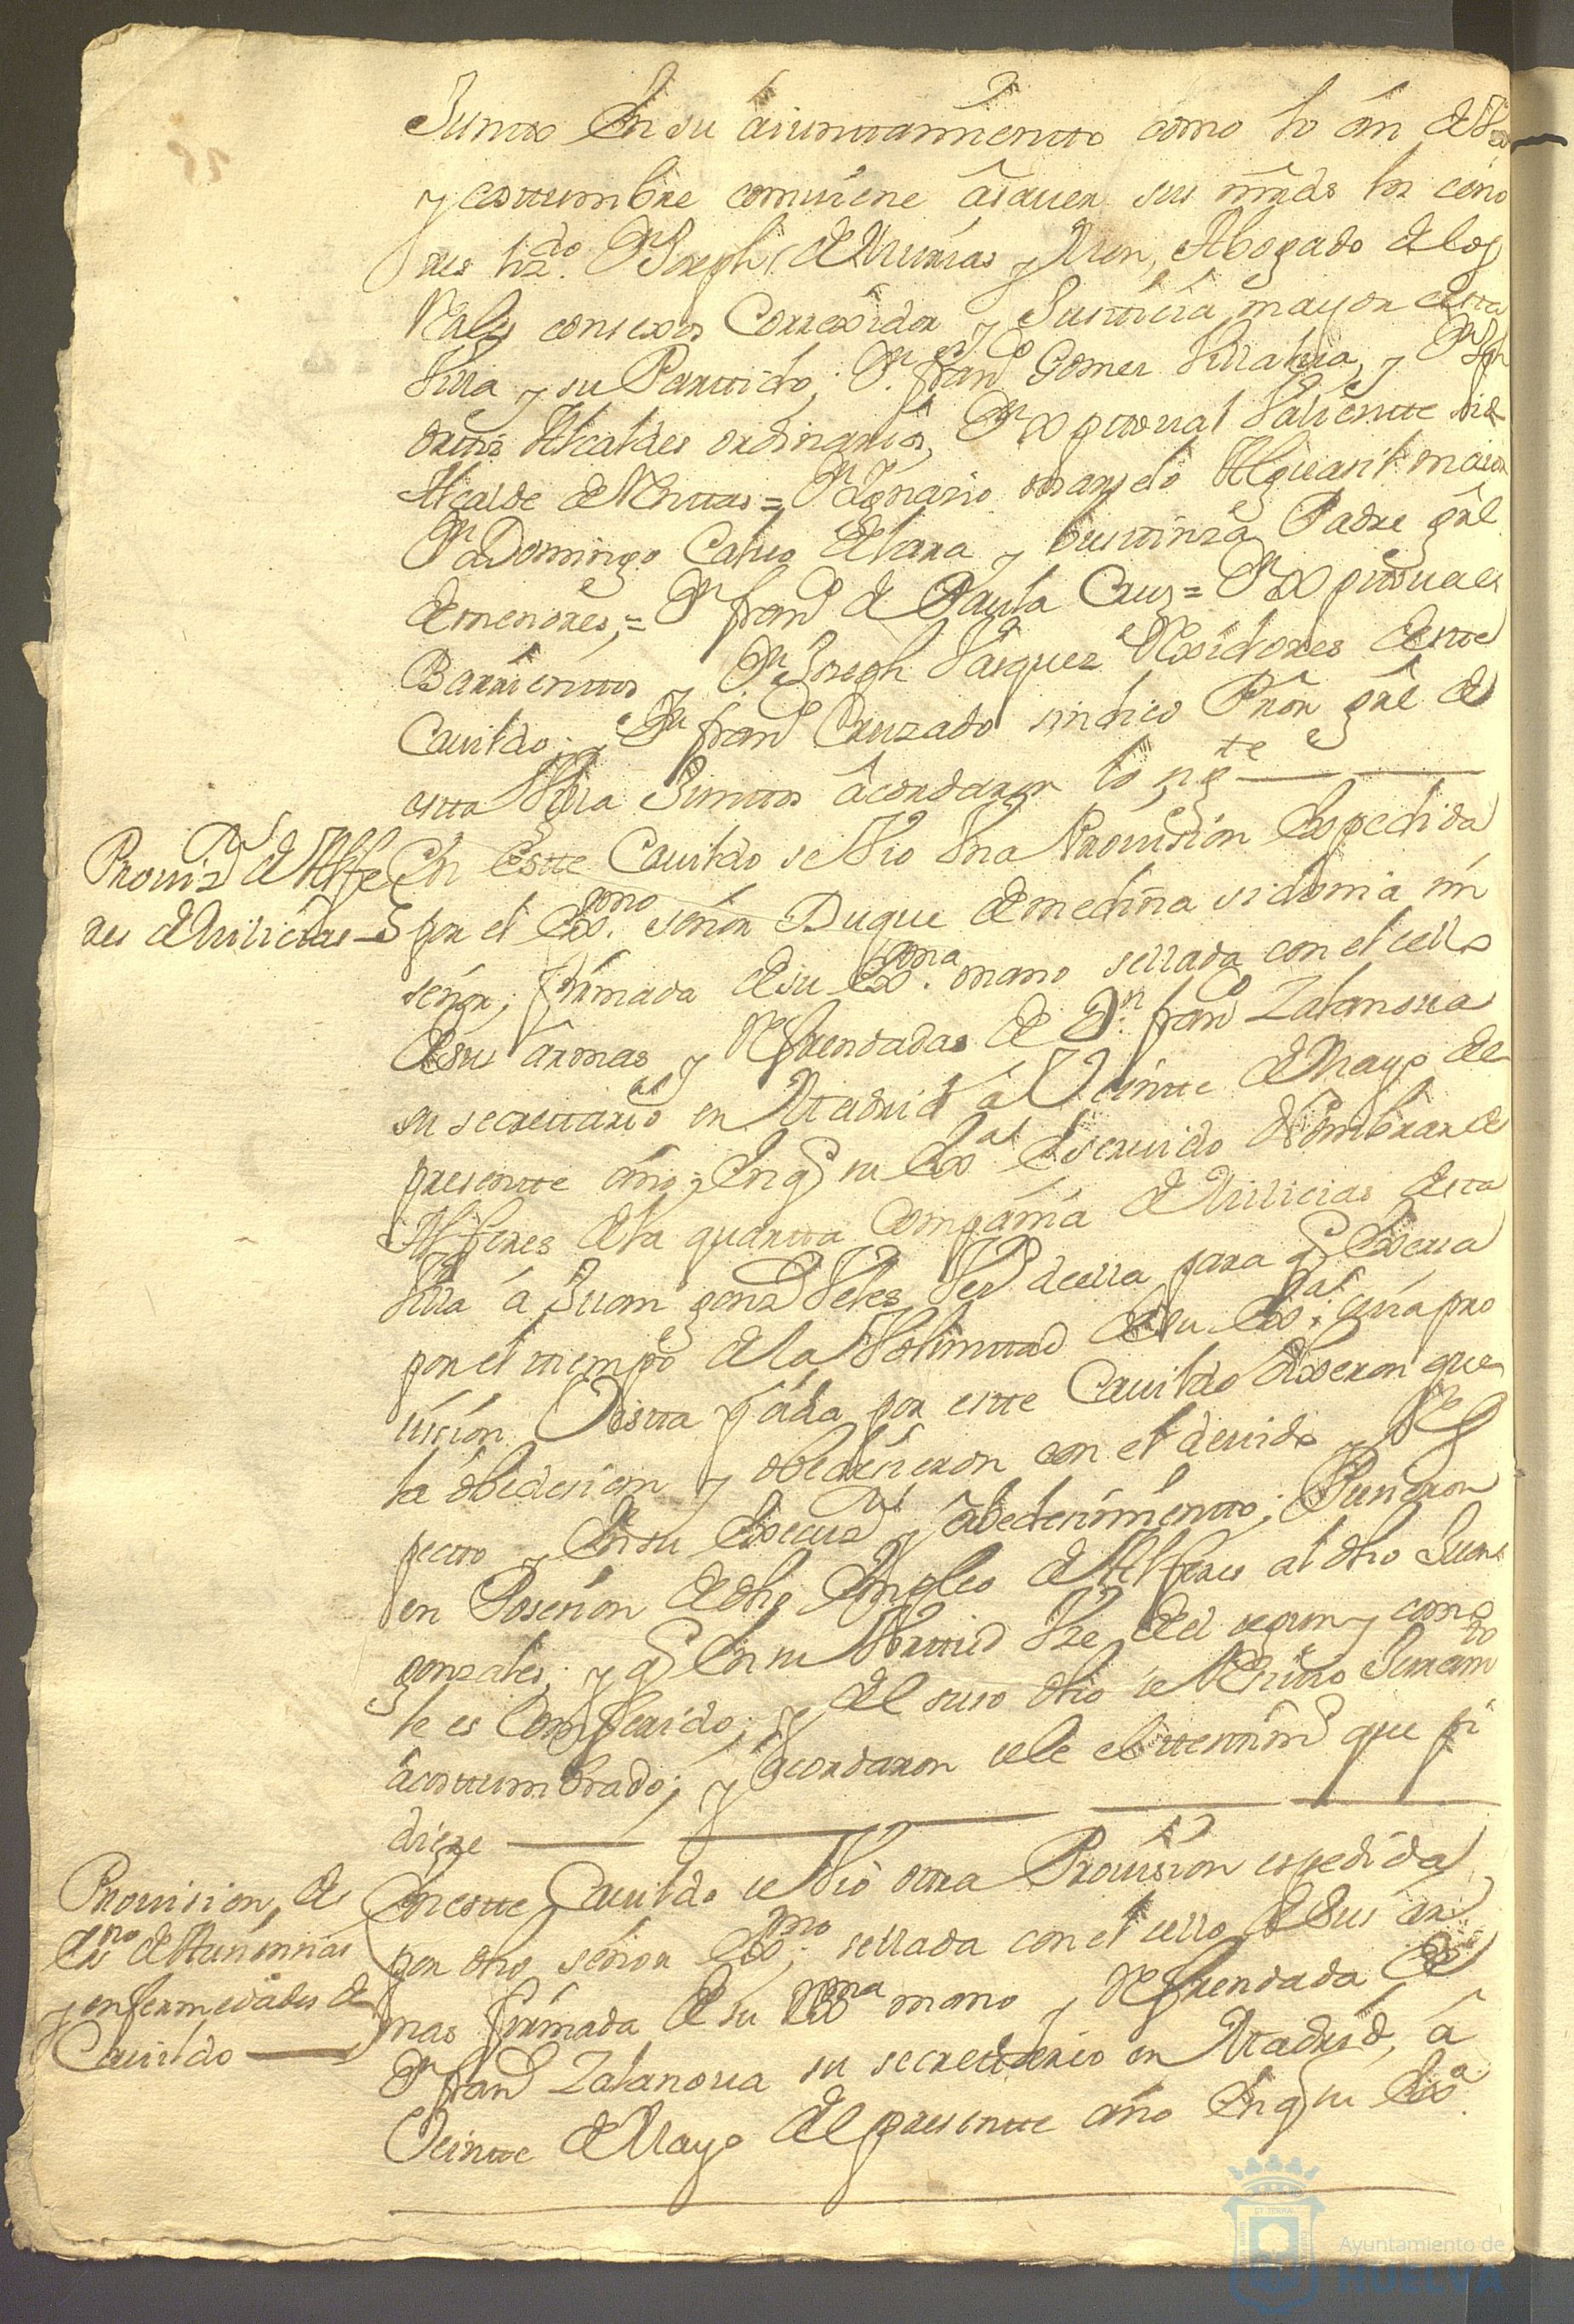 Juntos En su aiuntamientto como lo án de Vso
y costtumbre comviene ásauer sus mrds los ceño
res lizdo. Dn Joseph de Murias y Mon, Abogado de los
Rales consexos Correxidor y Justticia mayor de esta
Villa y su Parttido; Dn. franco Gomez Villalua, y Dn Jph
ortiz Alcaldes ordinarios, Dn Xptoual Valientte
Alcalde de Menttas = Dn Ygnazio Alguasil maior
Dn Domingo Caluo de lara y busttinza Padre grál
de menores, = Dn franco de Paula Cruz = Dn Xptoual
Barrienttos y Dn Joseph Vasquez Rexidores destte
Cauildo; y Dn franco Cruzado sindico Prór grâl de
estta Villa Junttos ácordaron lo sigte
Prouizn de Alfe
res de Milicias
En Estte Cauildo se Vio Vna Prouisión Expedida
por el Exmo. señor Duque de medina sidonia mi
señor; firmada de su Exma. mano sellada con el cello
de su ármas y Refrendadas de Dn. franco Zalanoua
su secrettario en Madrid á Veintte de Mayo de
presentte año; En q su Exa á seruido Nombrar de
Alferes de la quartta Compañia de Milicias desta
Villa á Juan gonz Veles Veo de ella para q Exerza
por el tiempo de la Voluntad de su Exa. cuia pro
uisión Vistta y oida por estte Cauildo dixeron que
la óbedesian y obedesieron con el deuido Res
pecto y En su Execuzn y óbedesimientto; Pusieron
en Posesión de dho Empleo de Alferes al dho Juan
gonzales; y q En su Virttud Vse de el segun y como
le es Conferido; y del suso dho se Resiuio Juramto
ácosttumbrado; y ácordaron se le é el testtimo que pi
diere
Prouision, de
Exno de Hanimas
y enfermedades de
Cauildo
En estte Cauildo se Vió ottra Prouision espedida
por dho señor Exmo. sellada con el cello de Sus ár
mas firmada de su Exma mano y Refrendada de
Dn franco Zalanoua su secrettario en Madrid, á
Veintte de Mayo del presentte año En q su Exa.
Ayuntamiento de
HUELVA